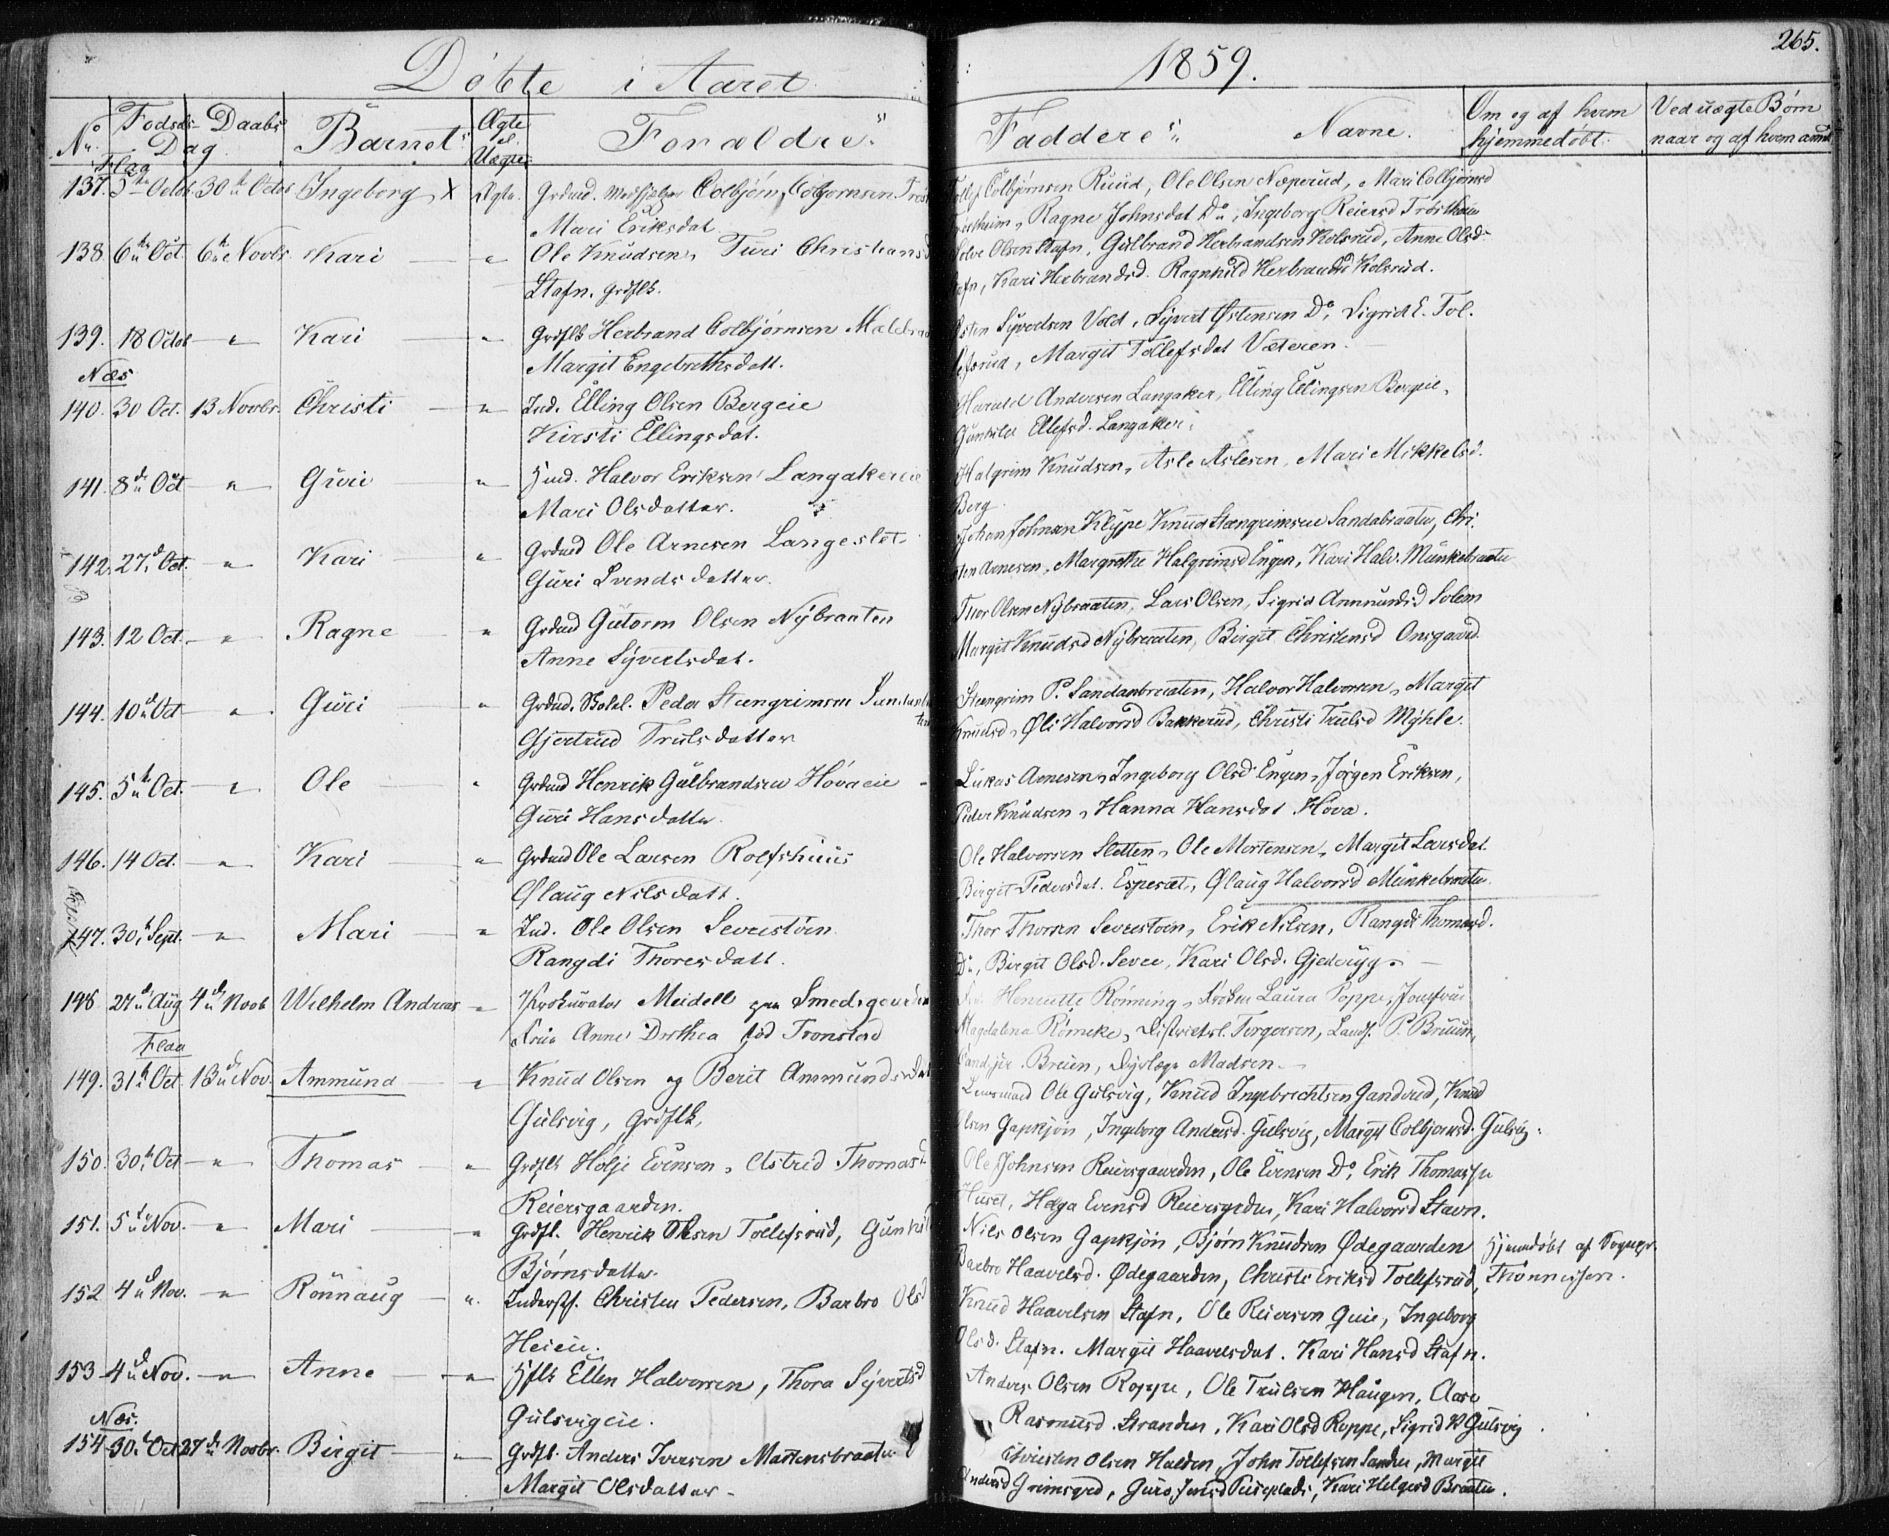 265.
Döbte i Aaret 1859.
No Födsels- Daabs Dag Barnet Ægte el. Uægte Forældre Faddere Navne. Om og af hvem hjemmedöbt. Ved uægte Börn naar og af hvem anm
Flaa
137. 5te Octob 30te Octob Ingeborg X Ægte. Grdmd. Colbjörn Colbjornsen
Mari Eriksdat
Colbjørnsen Ruud, Ole Olsen Næperud, Mari Colbjørnsd
Ragne Johnsdat Do, Ingeborg Reiersd Trostheim
138. 6te Oct. 6te Novbr Kari — " Ole Knudsen, Turi Christians
Stafn. Grdflk.
Olsen Stafn, Gulbrand Herbrandsen Kolsrud, Anne Olsd
Kari Herbrandsd. Ragnhild Herbrandsd Kolsrud.
139. 18 Octob — " Kari — " Grdflk Herbrand Colbjørnsen
Margit Engebrethsdatt.
Syvertsen Vold, Syvert Østensen Do, Sigrid E. Tol-
lefsrud, Margit Tollefsdat Væteren.
Næs
140. 30 Oct. 13 Novbr. Christi — " Ind. Elling Olsen Bergeie
Kirsti Ellingsdat.
Harald Andersen Langaker, Elling Ellingsen Bergeie,
Gunhild Ellefsd. Langaker.
141. 8de Oct — " Guri " Huusmd. Halvor Eriksen Langakereie
Mari Olsdatter.
Halgrim Knudsen, Asle Aslesen, Mari Mikkelsd.
Berg
142. 27de Oct. — " Kari — " Grdmd Ole Arnesen Langeslet
Guri Svendsdatter.
Johan Johnsen Klype Knud Stengrimsen Sandabraaten, Chri-
sten Arnesen, Margrethe Halgrimsd Engen, Kari Halv. Munkebraaten
143. 12 Oct. — " Ragne — " Grdmd Gutorm Olsen Nybraaten
Anne Syvertsdat.
Thor Olsen Nybraaten, Lars Olsen, Sigrid Ammundsd Solem
Margit Knudsd Nybraaten, Birgit Christensd Onsgaard.
144. 10de Oct — " Guri — " Grdmd. Peder Stengrimsen
Gjertrud Trulsdatter
Stengrim P. Sandaabraaten, Halvor Halvorsen, Margit
Knudsd, Øli Halvorsd Bakkerud, Christi Trulsd Myhle.
145. 5te Oct. — " Ole — " Grdmd Henrik Gulbrandsen Hóvaeie
Guri Hansdatter.
Lukas Arnesen, Ingeborg Olsd Engen, Jörgen Eriksen,
Peder Knudsen, Hanna Hansdat Hova.
146. 14 Oct. — " Kari — " Grdmd Ole Larsen Rolfshuus
Øslaug Nilsdatt.
Ole Halvorsen Sletten, Ole Mortensen, Margit Larsdat
Birgit Pedersdat. Espeset, Øslaug Halvorsd Munkebraaten.
147. 30te Sept. — " Mari — " Ind. Ole Olsen Severstöen
Rangdi Thoresdatt.
Thor Thorsen Severstoen, Erik Nilsen, Rangdi Thomasd.
Do, Birgit Olsd. Sevre, Kari Olsd. Gjedryg.
148. 27de Aug 4de Novb Wilhelm Andreas — " Prokurator Meidell paa Smedsgaarden
Frue Anne Dorthea föd Tronstad
Henriette Rönning, Fröken Laura Poppe, Jomfru
Magdalena Römcke, Distriktsl. Torgersen, Landh. P. Bruun,
Cand. jur. Bruun, Dyrlæge Madsen.
Flaa
149. 31te Oct 13de Nov. Ammund — " Knud Olsen og Berit Ammundsdat
Gulsvig, Grdflk.
Lensmand Ole Gulsvig, Knud Ingebrechtsen Gandrud, Knud
Olsen Gapkjön, Ingeborg Andersd. Gulsvig, Margit Colbjörnsd. Gulsvig.
150. 30te Oct — " Thomas — " Grdflk Holje Evensen, Astrid Thomasd
Reiersgaarden.
Ole Johnsen Reiersgaarden, Ole Evensen Do, Erik Thomassen
Huset, Helga Evensd Reiersgrden, Kari Halvorsd Stavn.
151. 5te Nov. — " Mari — " Grdfl. Henrik Olsen Tollefsrud, Gunhil
Björnsdatter.
Nils Olsen Gapkjön, Björn Knudsen Ødegaarden
Barbro Haavelsd. Ødegaarden, Christi Eriksd Tollefsrud,
Hjemdöbt af Sognepr. Thönnessen.
152 4de Nov. — " Rönnaug — ". Inderstf. Christen Pedersen, Barbro Olsd
Heieie.
Knud Haavelsen Stafn, Ole Reiersen Quie, Ingeborg
Olsd. Stafn. Margit Haavelsdat. Kari Hansd Stafn.
153 4de Nov. — " Anne — " Hflk Ellen Halvorsen, Thora Syvertsd
Gulsvigeie.
Anders Olsen Roppe, Ole Trulsen Haugen, Aase
Rasmusd. Stranden, Kari Olsd Roppe, Sigrid K Gulsvig.
Næs.
154 30te Oct 27de Novbr. Birgit — " Grdfl. Anders Iversen Mortensbraaten
Margit Olsdatter.
Christen Olsen Halden, John Tollefsen Sanden, Margit
Andersd Grimsgrd, Guro Jensd, Kari Helgesd Braaten.